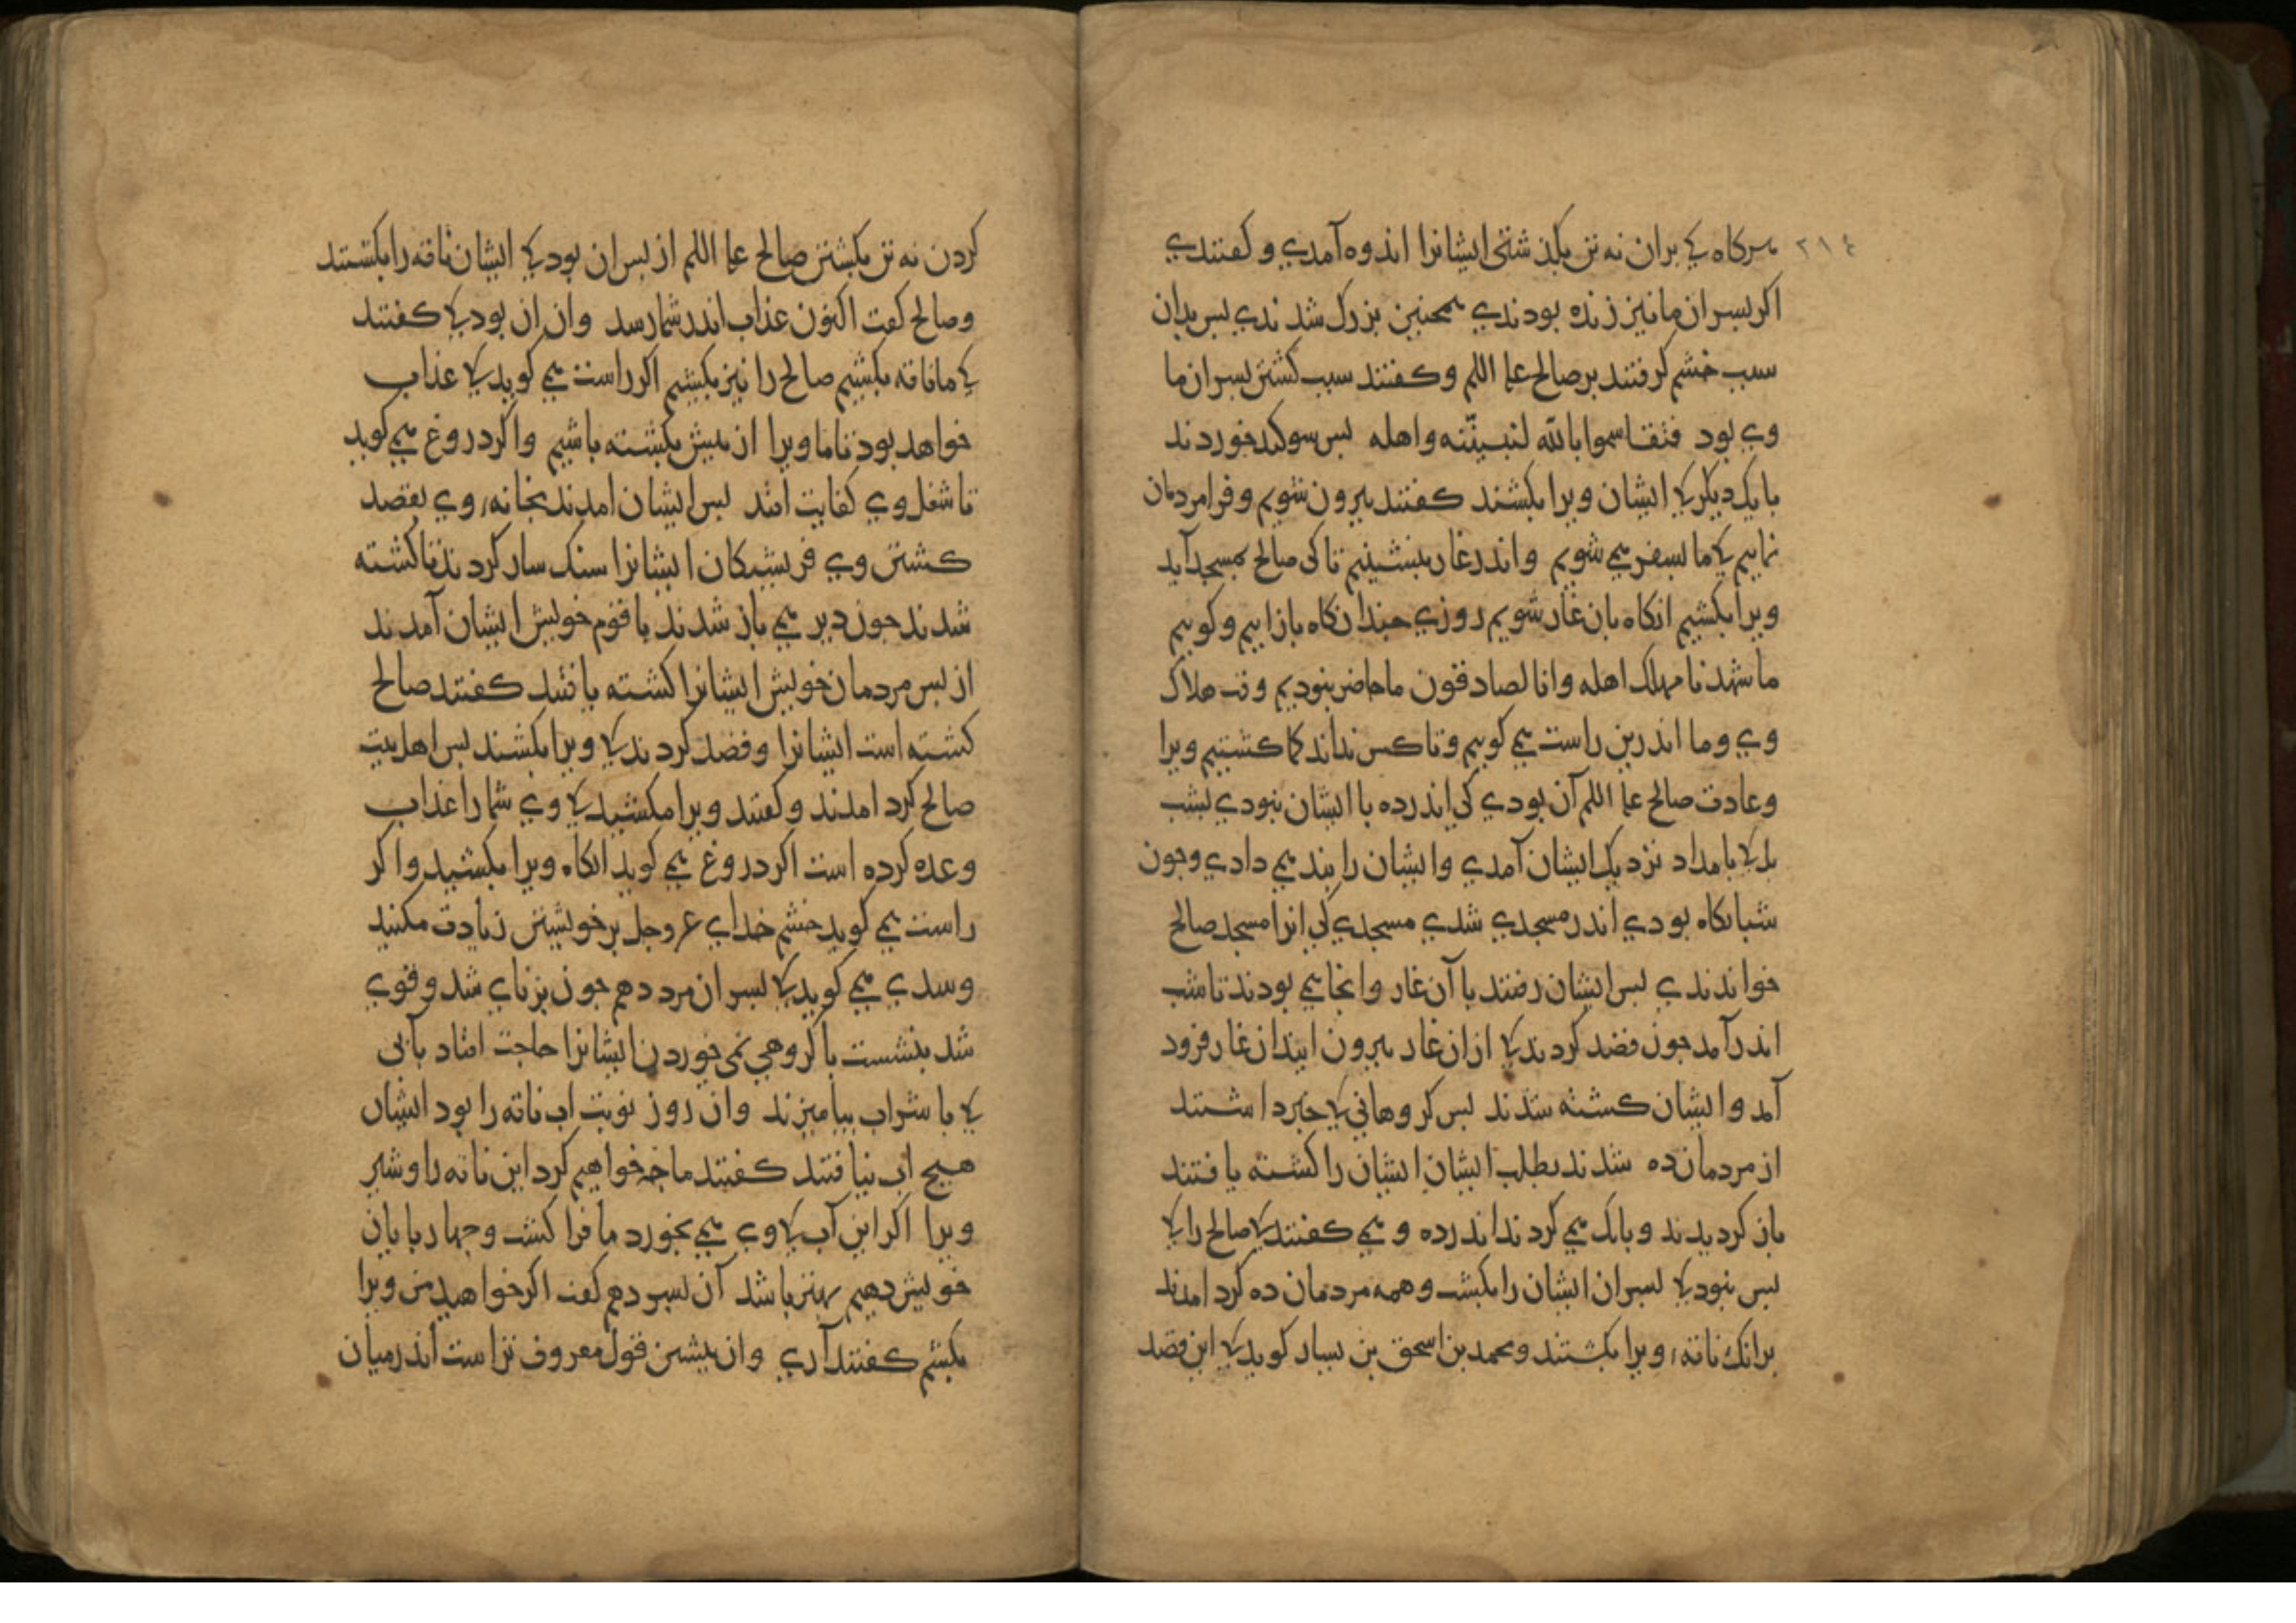 ٢١٤
هرگاه کی بران نه تن بگذشتی ایشانرا اندوه آمدی و کفتندی
اکر بسران ما نیز زنده بودندی همچنین بزرک شدندی بس بدان
سبب خشم کرفتند بر صالح علیه السلم و کفتند سبب کشتن بسران ما
وی بود فتقاسموا بالله لنبیتنه واهله بس سوکند خوردند
با یک دیکر کی ایشان ویرا بکشند کفتند بیرون شویم و فرا مردمان
نماییم کی ما بسفر می شویم واندر غار بنشینیم تا کی صالح بمسجد آید
ویرا بکشیم انکاه بان غار شویم روزی جندانکاه باز اییم و کوییم
ما شهدنا مهلک اهله وانا لصادقون ما حاضر نبودیم وقت هلاک
وی وما اندرین راست می کوییم وتا کس نداند کما کشتیم ویرا
وعادت صالح علیه السلم آن بودی کی اندر ده با ایشان نبودی بشب
بل کی بامداد نزدیک ایشان آمدی وایشان را بند می دادی وجون
شبانکاه بودی اندر مسجدی شدی مسجدی کی انرا مسجد صالح
خواندندی بس ایشان رفتند با آن غار وانجا می بودند تا شب
اندر آمد جون قصد کردند کی ازان غار بیرون ایند ان غار فرود
آمد وایشان کشته شدند بس کروهانی کی خبر داشتند
از مردمان ده شدند بطلب ایشان ایشان را کشته یافتند
باز کردیدند وبانک می کردند اندر ده و می کفتند کی صالح را کی
بس نبود کی بسران ایشان را بکشت وهمه مردمان ده کرد امدند
برانک ناقه، ویرا بکشتند ومحمد بن اسحق بن یسار کوید کی این قصد
کردن نه تن بکشتن صالح علیه السلم از بس ان بود کی ایشان ناقه را بکشتند
وصالح کفت اکنون عذاب اندر شما رسد وان ان بود کی کفتند
کی ما ناقه بکشیم صالح را نیز بکشیم اکر راست می کوید کی عذاب
خواهد بود تا ما ویرا از بیش بکشته باشیم واکر دروغ می کوید
تا شغل وی کفایت افتد بس ایشان امدند بخانه، وی بقصد
کشتن وی فریشتکان ایشانرا سنک سار کردند تا کشته
شدند جون دیر می باز شدند با قوم خویش ایشان آمدند
از بس مردمان خویش ایشانرا کشته یافتند کفتند صالح
کشته است ایشانرا وقصد کردند کی ویرا بکشند بس اهل بیت
صالح کرد امدند وکفتند ویرا مکشید کی وی شما را عذاب
وعده کرده است اکر دروغ می کوید انکاه ویرا بکشید واکر
راست می کوید خشم خدای عز وجل بر خویشتن زیادت مکنید
وسدی می کوید کی بسر ان مرد دهم جون برنای شد وقوی
شد بنشست با کروهی می خوردن ایشانرا حاجت افتاد بآبی
کی با شراب بیامیزند وان روز نوبت اب ناقه را بود ایشان
هیج اب نیافتند کفتند ما جه خواهیم کرد این ناقه را وشیر
ویرا اکر این آب کی وی می بخورد ما فرا کشت وجهاربایان
خویش دهیم بهتر باشد آن بسر دهم کفت اکر خواهید من ویرا
بکشم کفتند آری وان بیشین قول معروف تر است اندر میان